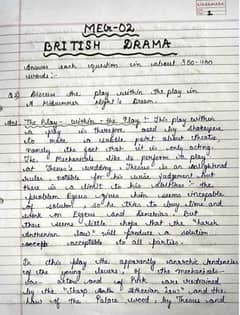 classmate
1
MEG-02
BRITISH DRAMA
Answer each question in about 300-400
words:-
Discuss the play within the play in
A Midsummer Night's Dream.
Ans: The Play-Within-the Play: This play within
a play is therefore used by Shakespeare
to make a point about theatre,
namely the fact that it is only acting.
The Mechanicals like to perform it play
at Theseus's wedding. Theseus is an enlightened
ruler notable for his wise judgement but
there is a limit to his
problem Egeus gives him seems incapable
of solution so he tries to buy time and
work on Egeus and Demetrius. But
there seems little hope that the "harsh
Athenian law" will produce a solution
acceptable to all parties.
In this play the apparently anarchic tendencies
of the young lovers, of the mechanicals-
as-actors and of Puck are restrained
by the "sharp Athenian law" and the
law of the Palace wood by Theseus and